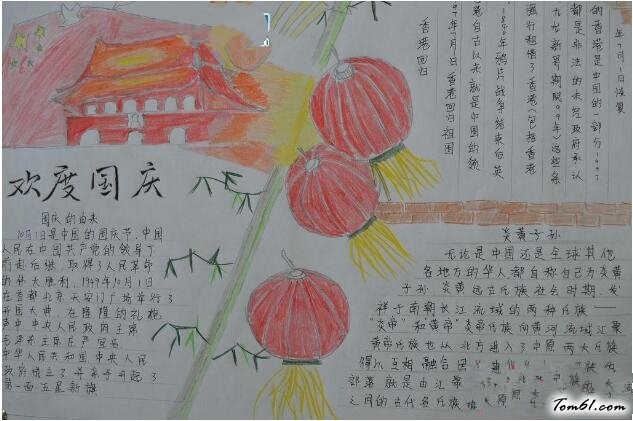 欢度国庆
国庆的由来
10月1日是中国的国庆节,中国
人民在中国共产党的领导下
前赴后继,取得了人民革命
的伟大胜利,1949年10月1日
在首都北京天安门广场举行了
开国大典,在隆隆的礼炮
声中中央人民政府主席
毛泽东主席庄严宣告
中华人民共和国中央人民
政府成立了并亲手升起了
第一面五星红旗
年7月1日恢复
的香港是中国的一部分1997
都是非法的未经政府承认
九龙新界期限99年)这些条
强行租借了香港(包括香港
1840年鸦片战争结束后英
香港自古以来就是中国的领
97年7月1日香港回归祖国
香港回归
炎黄子孙
无论是中国还是全球其他
各地方的华人都自称自己为炎黄
子孙 炎黄远古氏族社会时期 发
祥于南朝长江流域的两种氏族——
"炎帝"和"黄帝"炎帝氏族向黄河流域汇聚
黄帝氏族也从北方进入了中原 两大氏族
得以互相融合
部落就是由江
之间的古代各氏族
Tom61.com